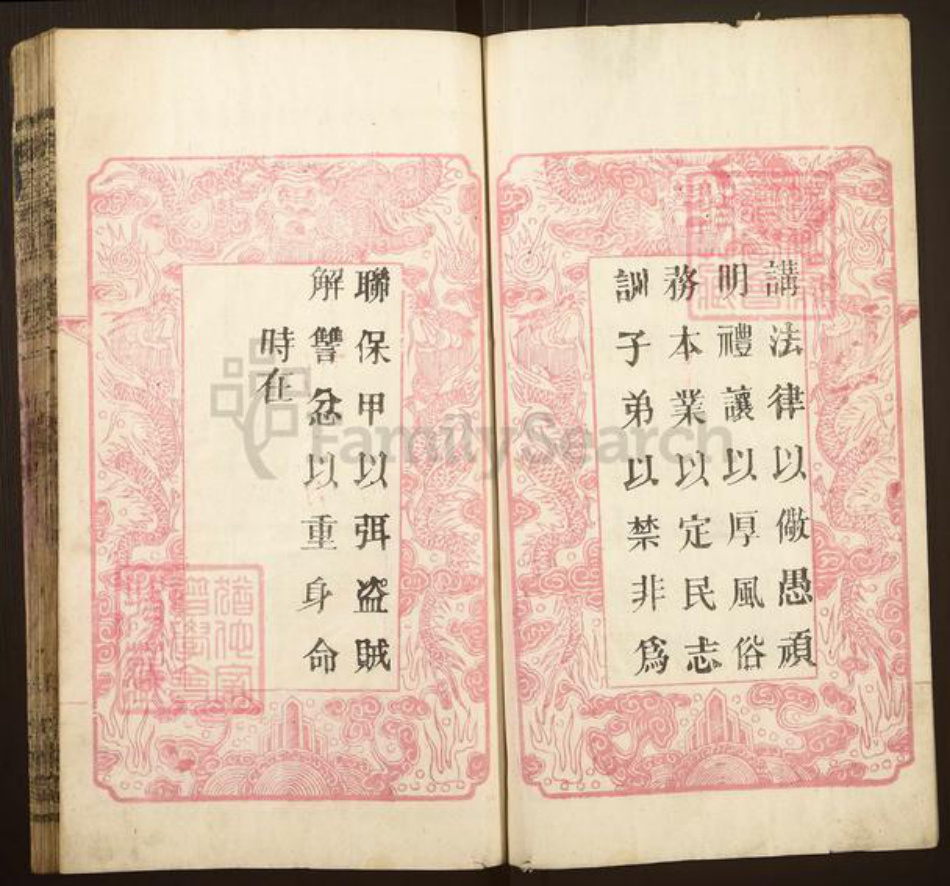 講法律以儆愚頑
明禮讓以厚風俗
務本業以定民志
訓子弟以禁非為
聯保甲以弭盗賊
解讐忿以重身命
時在
FamilySearch